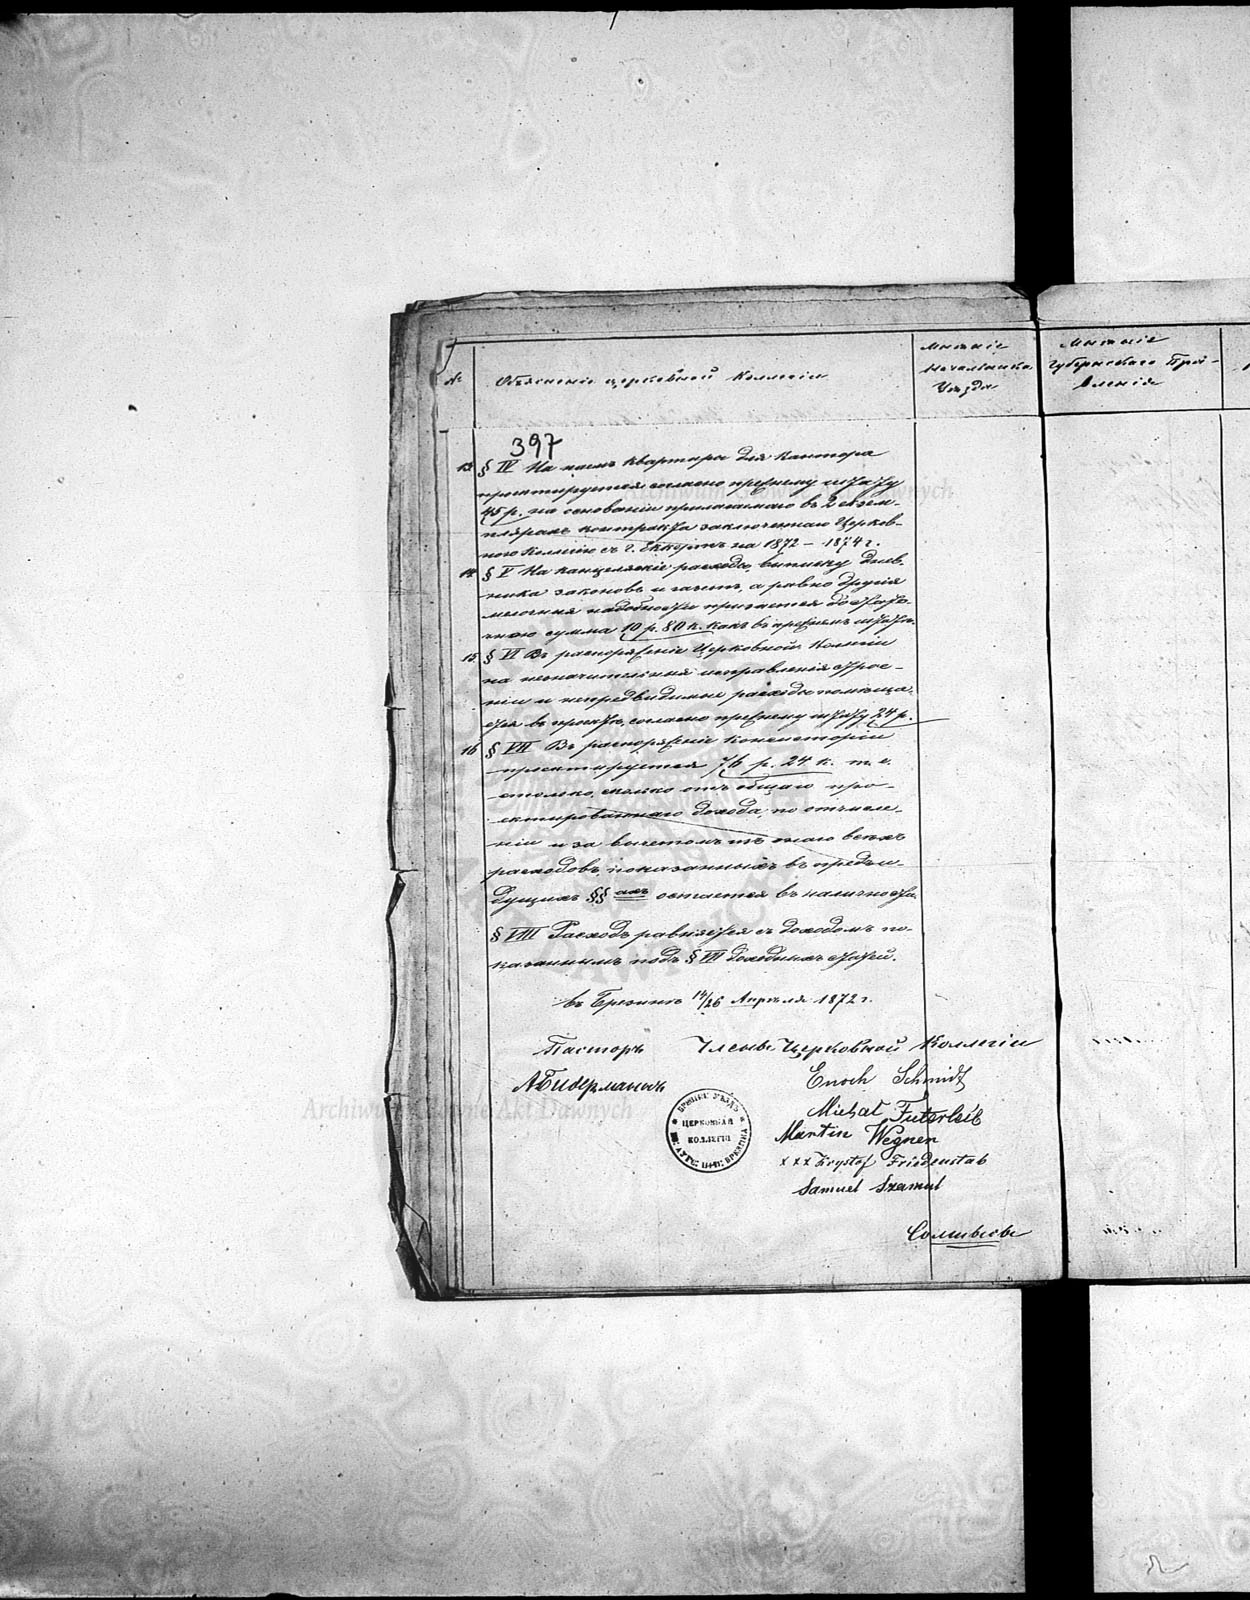 №
Объясненіе церковной Коллегіи
Мнѣніе
Начальника
Уѣзда
Мнѣніе
Губернскаго Пра-
вленія
397
13. § IV На наемъ квартиры для Кантора
проектируется согласно прежнему штату
45 р. на основаніи прилагаемаго въ 2 экзем-
плярахъ контракта заключеннаго Церков-
ною Коллегіею съ г. на 1872 – 1874 г.
14. § V На канцелярскіе расходы, выписку Днев-
ника законовъ и газетъ, а равно другія
мелочныя надобности признается достато-
чною сумма 10 р. 80 к. какъ въ прежнемъ штатѣ.
15. § VI Въ распоряженіи Церковной Коллегіи
на незначительныя исправленія строе-
ніи и непредвидимые расходы помѣща-
ется въ проектѣ, согласно прежнему штату 24 р.
16. § VII Въ распоряженіи Консисторіи
проектируется 76 р. 24 к. т. е.
столько, сколько отъ общаго про-
ектированнаго дохода, по отчисле-
ніи и за вычетомъ всѣхъ
расходовъ, показанныхъ въ преды-
дущихъ §§ ахъ остается въ наличности.
§ VIII Расходъ равняется съ доходомъ по-
казаннымъ подъ § VII доходныхъ статей.
въ Брезинѣ 14/26 Апрѣля 1872 г.
Пасторъ Члены Церковной Коллегіи
А Бидерманъ
Enoch Schmidt
Michał Futerleib
Martin Wegner
x x x Krysztof Friedenstab
Samuel Szamul
ЦЕРКОВНАЯ
КОЛЛЕГІЯ
Archiwum Główne Akt Dawnych
Archiwum Główne Akt Dawnych